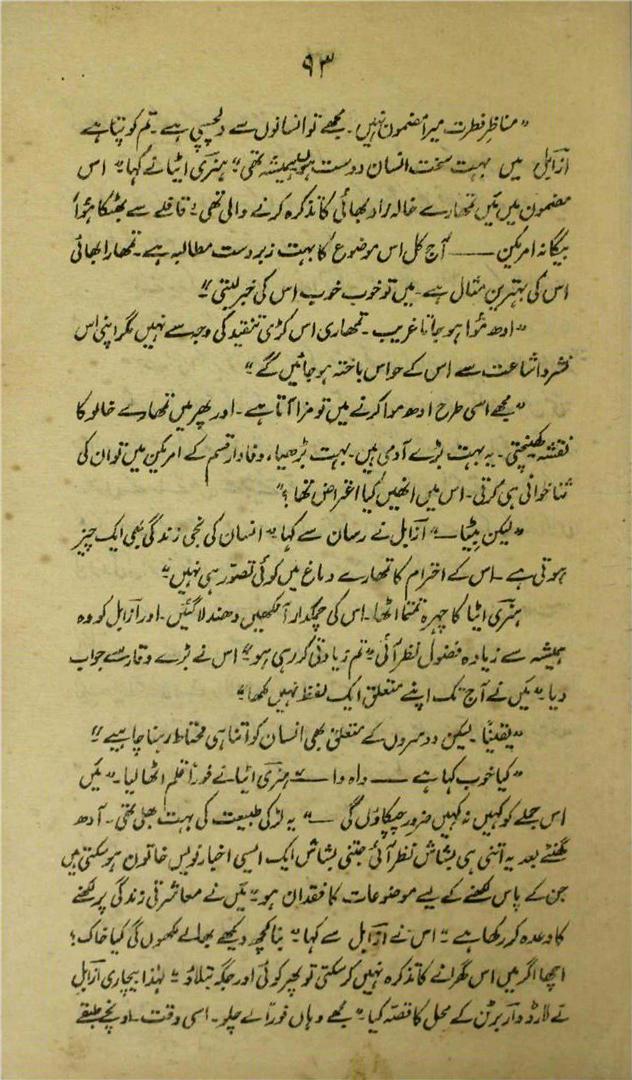 ۹۳
”مناظرِ فطرت میرا مضمون نہیں۔ مجھے تو انسانوں سے دلچسپی ہے۔ تم کو پتا ہے
ازابل میں بہت سخت انسان دوست ہمیشہ تھی“ ہنری اٹیا نے کہا” اس
مضمون میں مَیں تمھارے خالہ زاد بھائی کا تذکرہ کرنے والی تھی؛ قافلے سے بھٹکا ہؤا
بیگانہ امریکن —— آج کل اس موضوع کا بہت زبردست مطالبہ ہے۔ تمھارا بھائی
اس کی بہترین مثال ہے۔ میں تو خوب خوب اس کی خبر لیتی“
”ادھ مُوا ہو جاتا غریب۔ تمھاری اس کڑی تنقید کی وجہ سے نہیں مگر اپنی اس
نشر و اشاعت سے اس کے حواس باختہ ہو جائیں گے“
”مجھے اسی طرح ادھ موا کرنے میں تو مزا آتا ہے۔ اور پھر میں تمھارے خالو کا
نقشہ کھینچتی۔ یہ بہت بڑے آدمی ہیں۔ بہت بڑھیا، وفادار قسم کے امریکن میں تو ان کی
ثنا خوانی ہی کرتی۔ اس میں انھیں کیا اعتراض تھا؟“
”لیکن بیٹیا—“ ازابل نے رسان سے کہا” انسان کی نجی زندگی بھی ایک چیز
ہوتی ہے۔ اس کے احترام کا تمھارے دماغ میں کوئی تصوّر ہی نہیں“
ہنری اٹیا کا چہرہ تمتما اٹھا۔ اس کی چمکدار آنکھیں دھندلا گئیں۔ اور ازابل کو وہ
ہمیشہ سے زیادہ فضول نظر آئی” تم زیادتی کر رہی ہو“ اس نے بڑے وقار سے جواب
دیا” مَیں نے آج تک اپنے متعلق ایک لفظ نہیں لکھا“
”یقیناً۔ لیکن دوسروں کے متعلق بھی انسان کو اتنا ہی محتاط رہنا چاہیے“
”کیا خوب کہا ہے —— واہ وا —“ ہنری اٹیا نے فوراً قلم اٹھا لیا۔” مَیں
اس جملے کو کہیں نہ کہیں ضرور چپکاؤں گی —“ یہ لڑکی طبیعت کی بہت بھلی تھی۔ آدھ
گھنٹے بعد یہ اتنی ہی بشاش نظر آئی جتنی بشاش ایک ایسی اخبار نویس خاتون ہو سکتی ہیں
جن کے پاس لکھنے کے لیے موضوعات کا فقدان ہو” مَیں نے معاشرتی زندگی پر لکھنے
کا وعدہ کر رکھا ہے“ اس نے ازابل سے کہا” بنا کچھ دیکھے بھالے لکھوں گی کیا خاک؛
اچھا اگر میں اس گھرانے کا تذکرہ نہیں کر سکتی تو پھر کوئی اور جگہ بتلاؤ“ لہٰذا بیچاری ازابل
نے لارڈ واربرٹن کے محل کا قصّہ کیا۔” مجھے وہاں فوراً لے چلو۔ اسی وقت۔ اونچے طبقے